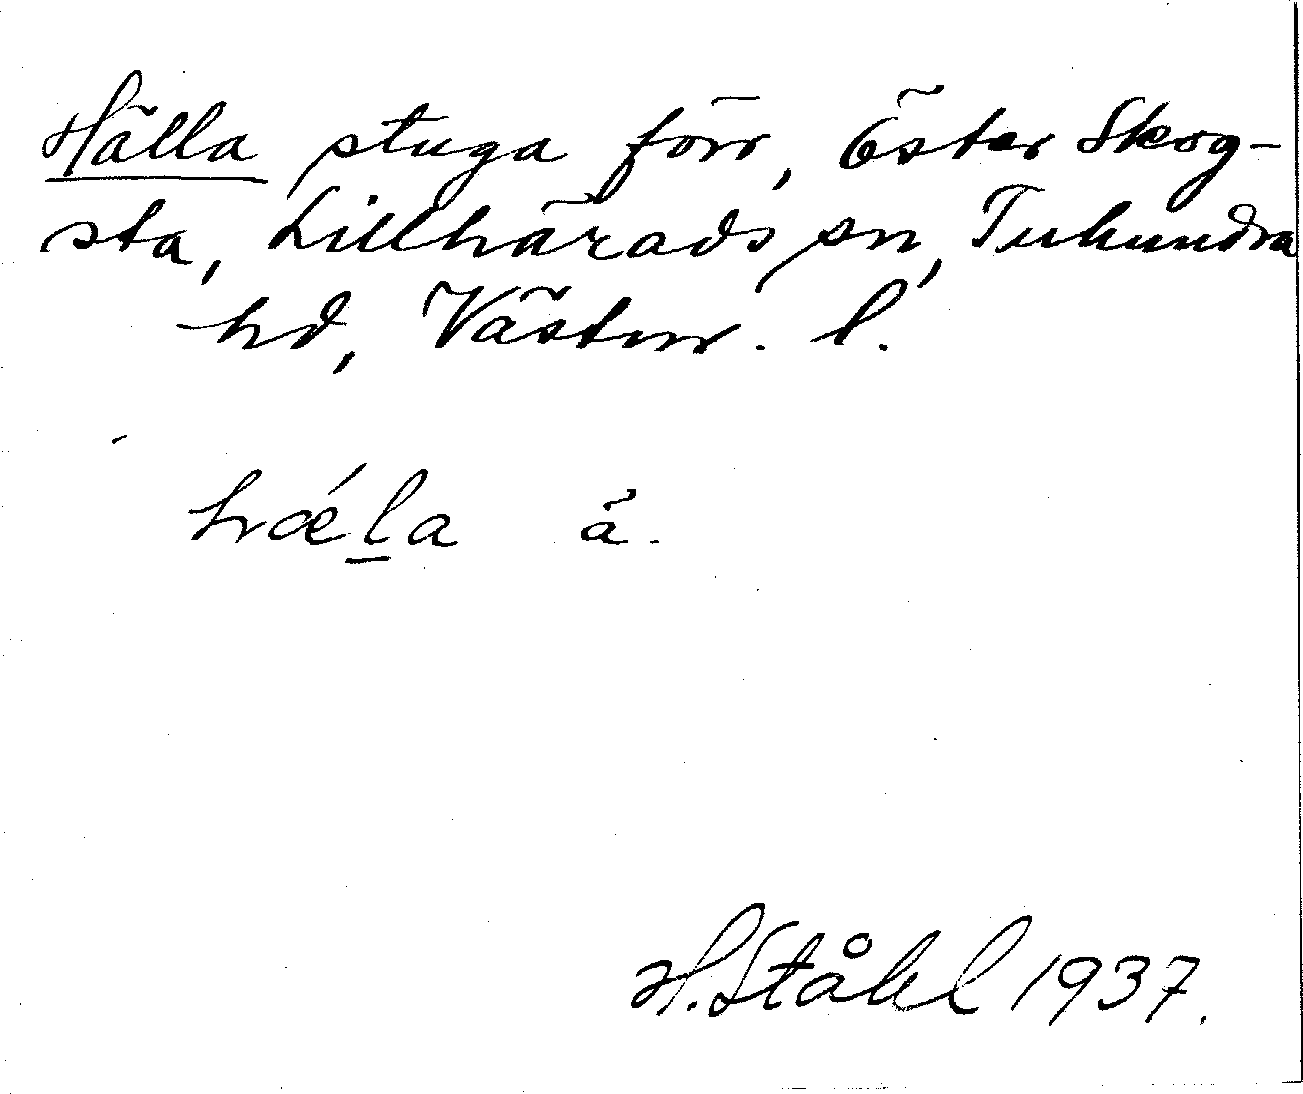 Hälla stuga förr, Öster Skog-
sta, Lillhärads sn, Tuhundra
hd, Västm. l.
hǽla ä.
H. Ståhl 1937.